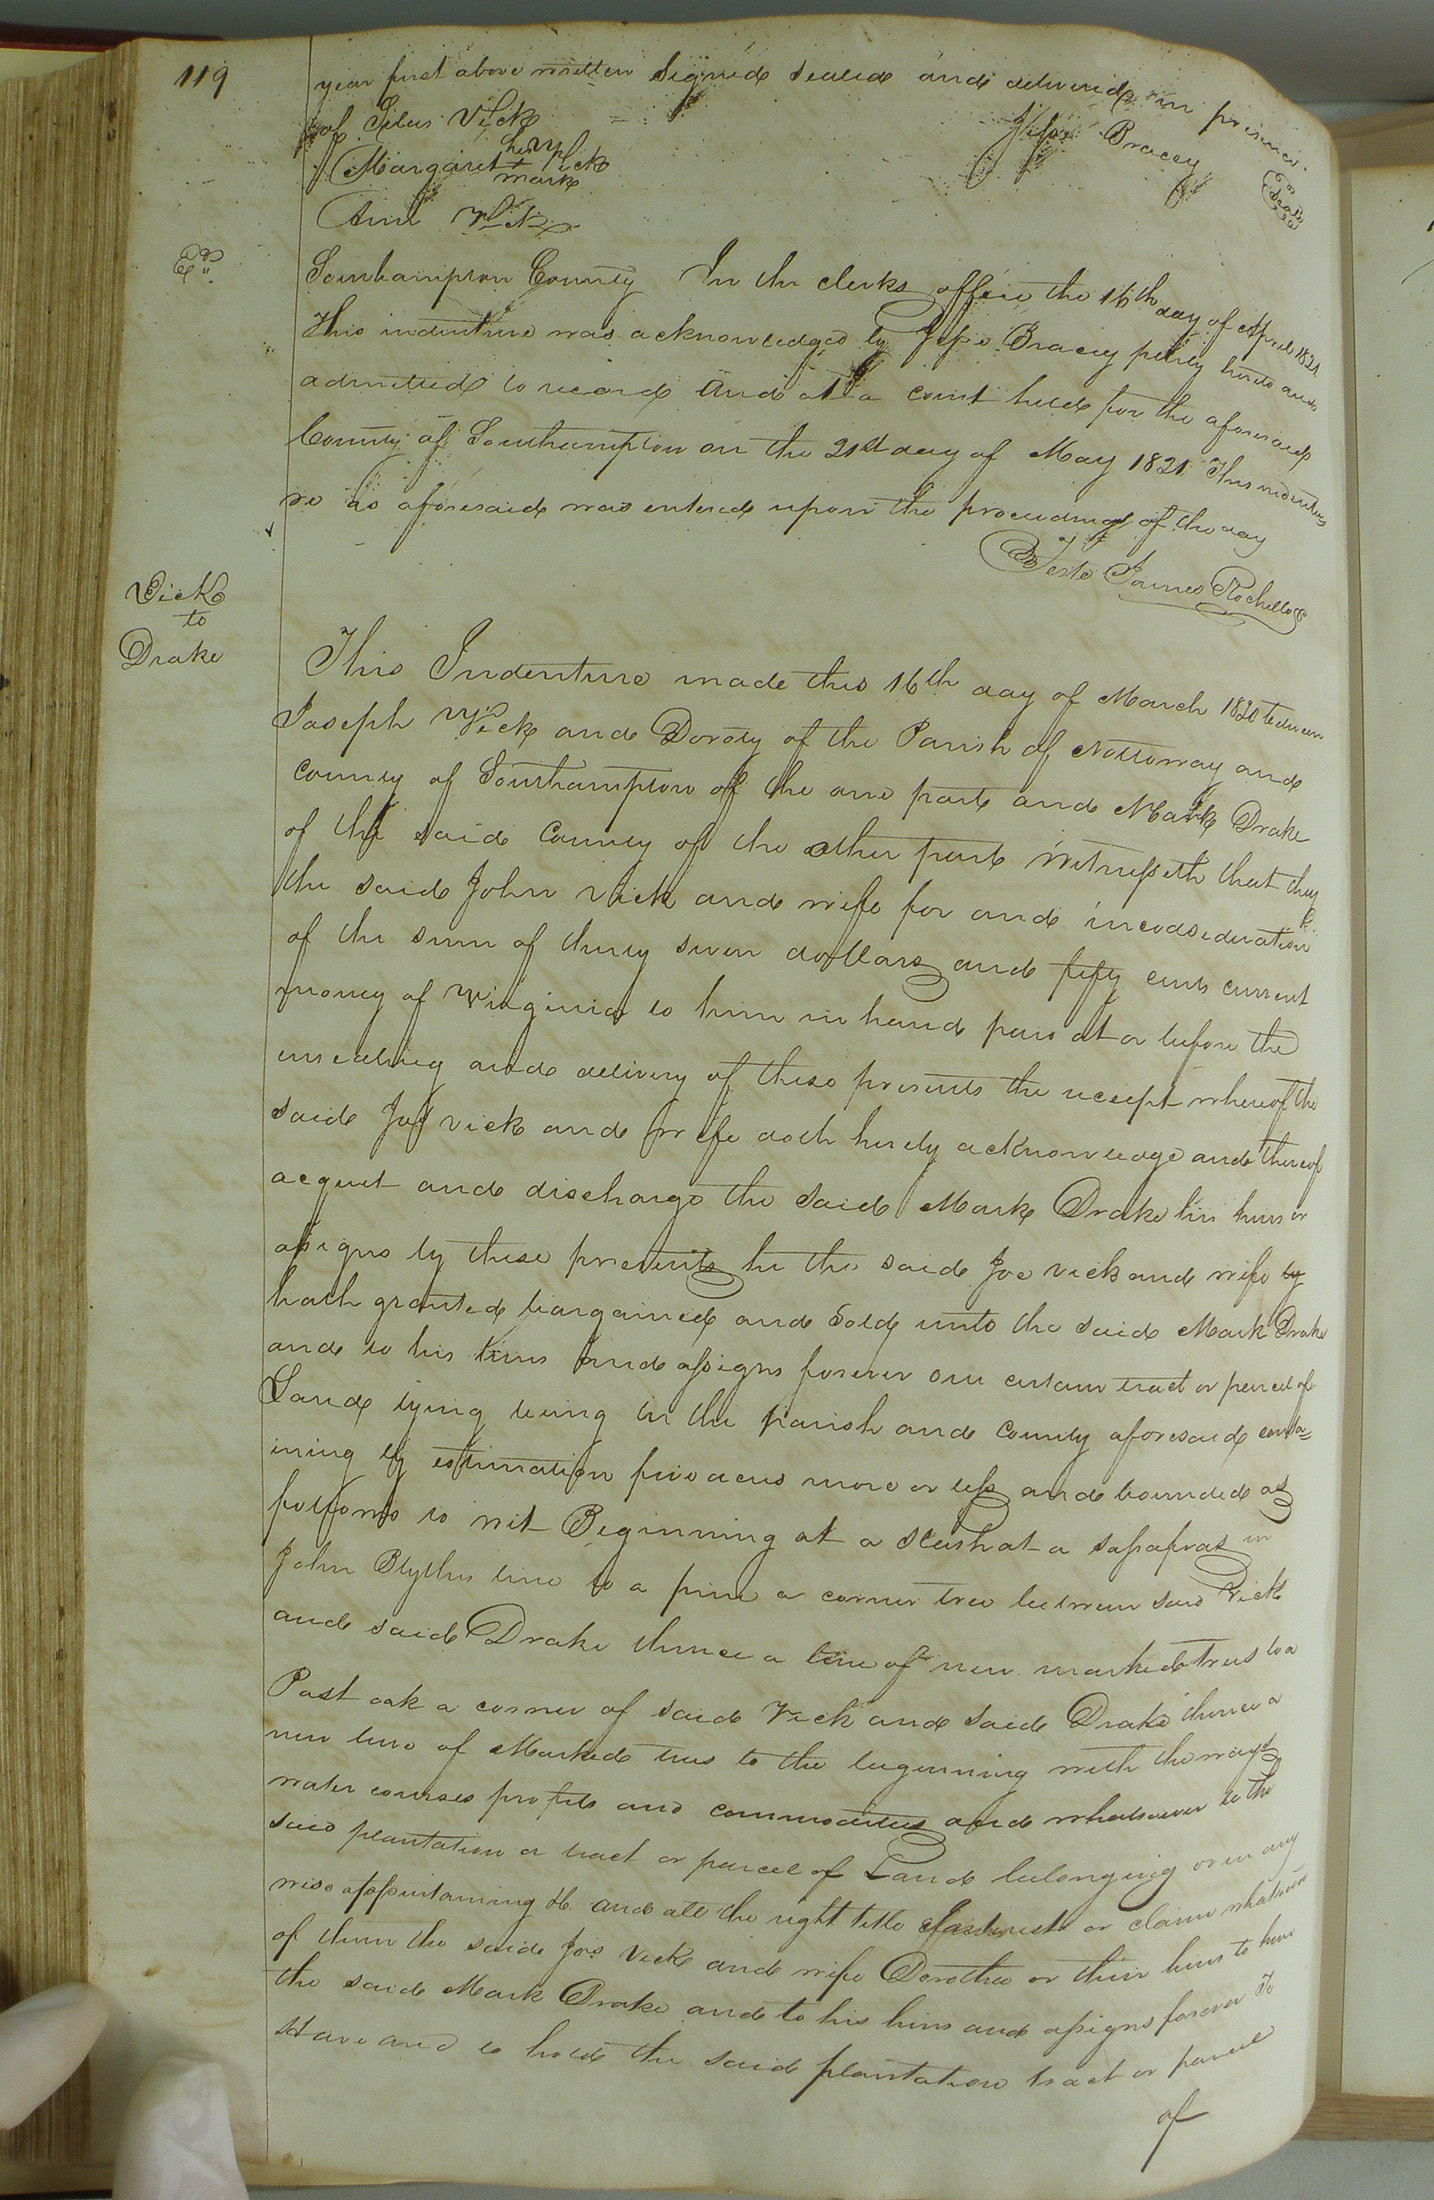 119
year first above written Signed sealed and delivered in presence
of Silas Vick
Jesse Bracey
Seal
Margaret her + mark Vick
Ann Vick
Ex
Southampton County In the clerks office the 16th day of April 1821
This indenture was acknowledged by Jesse Bracey party hereto and
admitted to record And at a court held for the aforesaid
County of Southampton on the 21st day of May 1821 This indentu
re as aforesaid was entered upon the proceedings of the day
Teste James Rochelle
Vick
to
Drake
This Indenture made this 16th day of March 1820 between
Joseph Vick and Doroty of the Parish of Nottoway and
County of Southampton of the one parte and Mark Drake
of the said County of the other parte Witnesseth that they
the said John Vick and wife for and in
of the sum of thirty seven dollars and fifty cents current
money of Virginia to him in hand paid at or before the
ensealing and delivery of these presents the receipt whereof the
said Jos Vick and wife doth hereby acknowledge and thereof
acquet and discharge the said Mark Drake his heirs or
assigns by these presents he the said Joe vick and wife by
hath granted bargained and Sold unto the said Mark Drake
and to his heirs and assigns forever one certain tract or parcel of
Land lying being in the parish and County aforesaid conta=
ining by estimation five acres more or less and bounded as
follows to wit Beginning at a slash at a sassafras in
John Blythes line to a pine a corner tree between said Vick
and said Drake thence a line of new marked trees to a
Post oak a corner of said Vick and said Drake thence a
new line of Marked trees to the beginning with the ways
water courses profits and commodities and whatsoever to the
said plantation or tract or parcel of Land belonging or in any
wise appurtaining &c and all the right title or claim whatsoever
of them the said Jos Vick and wife Dorothee or their heirs to him
the said Mark Drake and to his heirs and assigns forever To
Have and to hold the said plantation tract or parcel
of